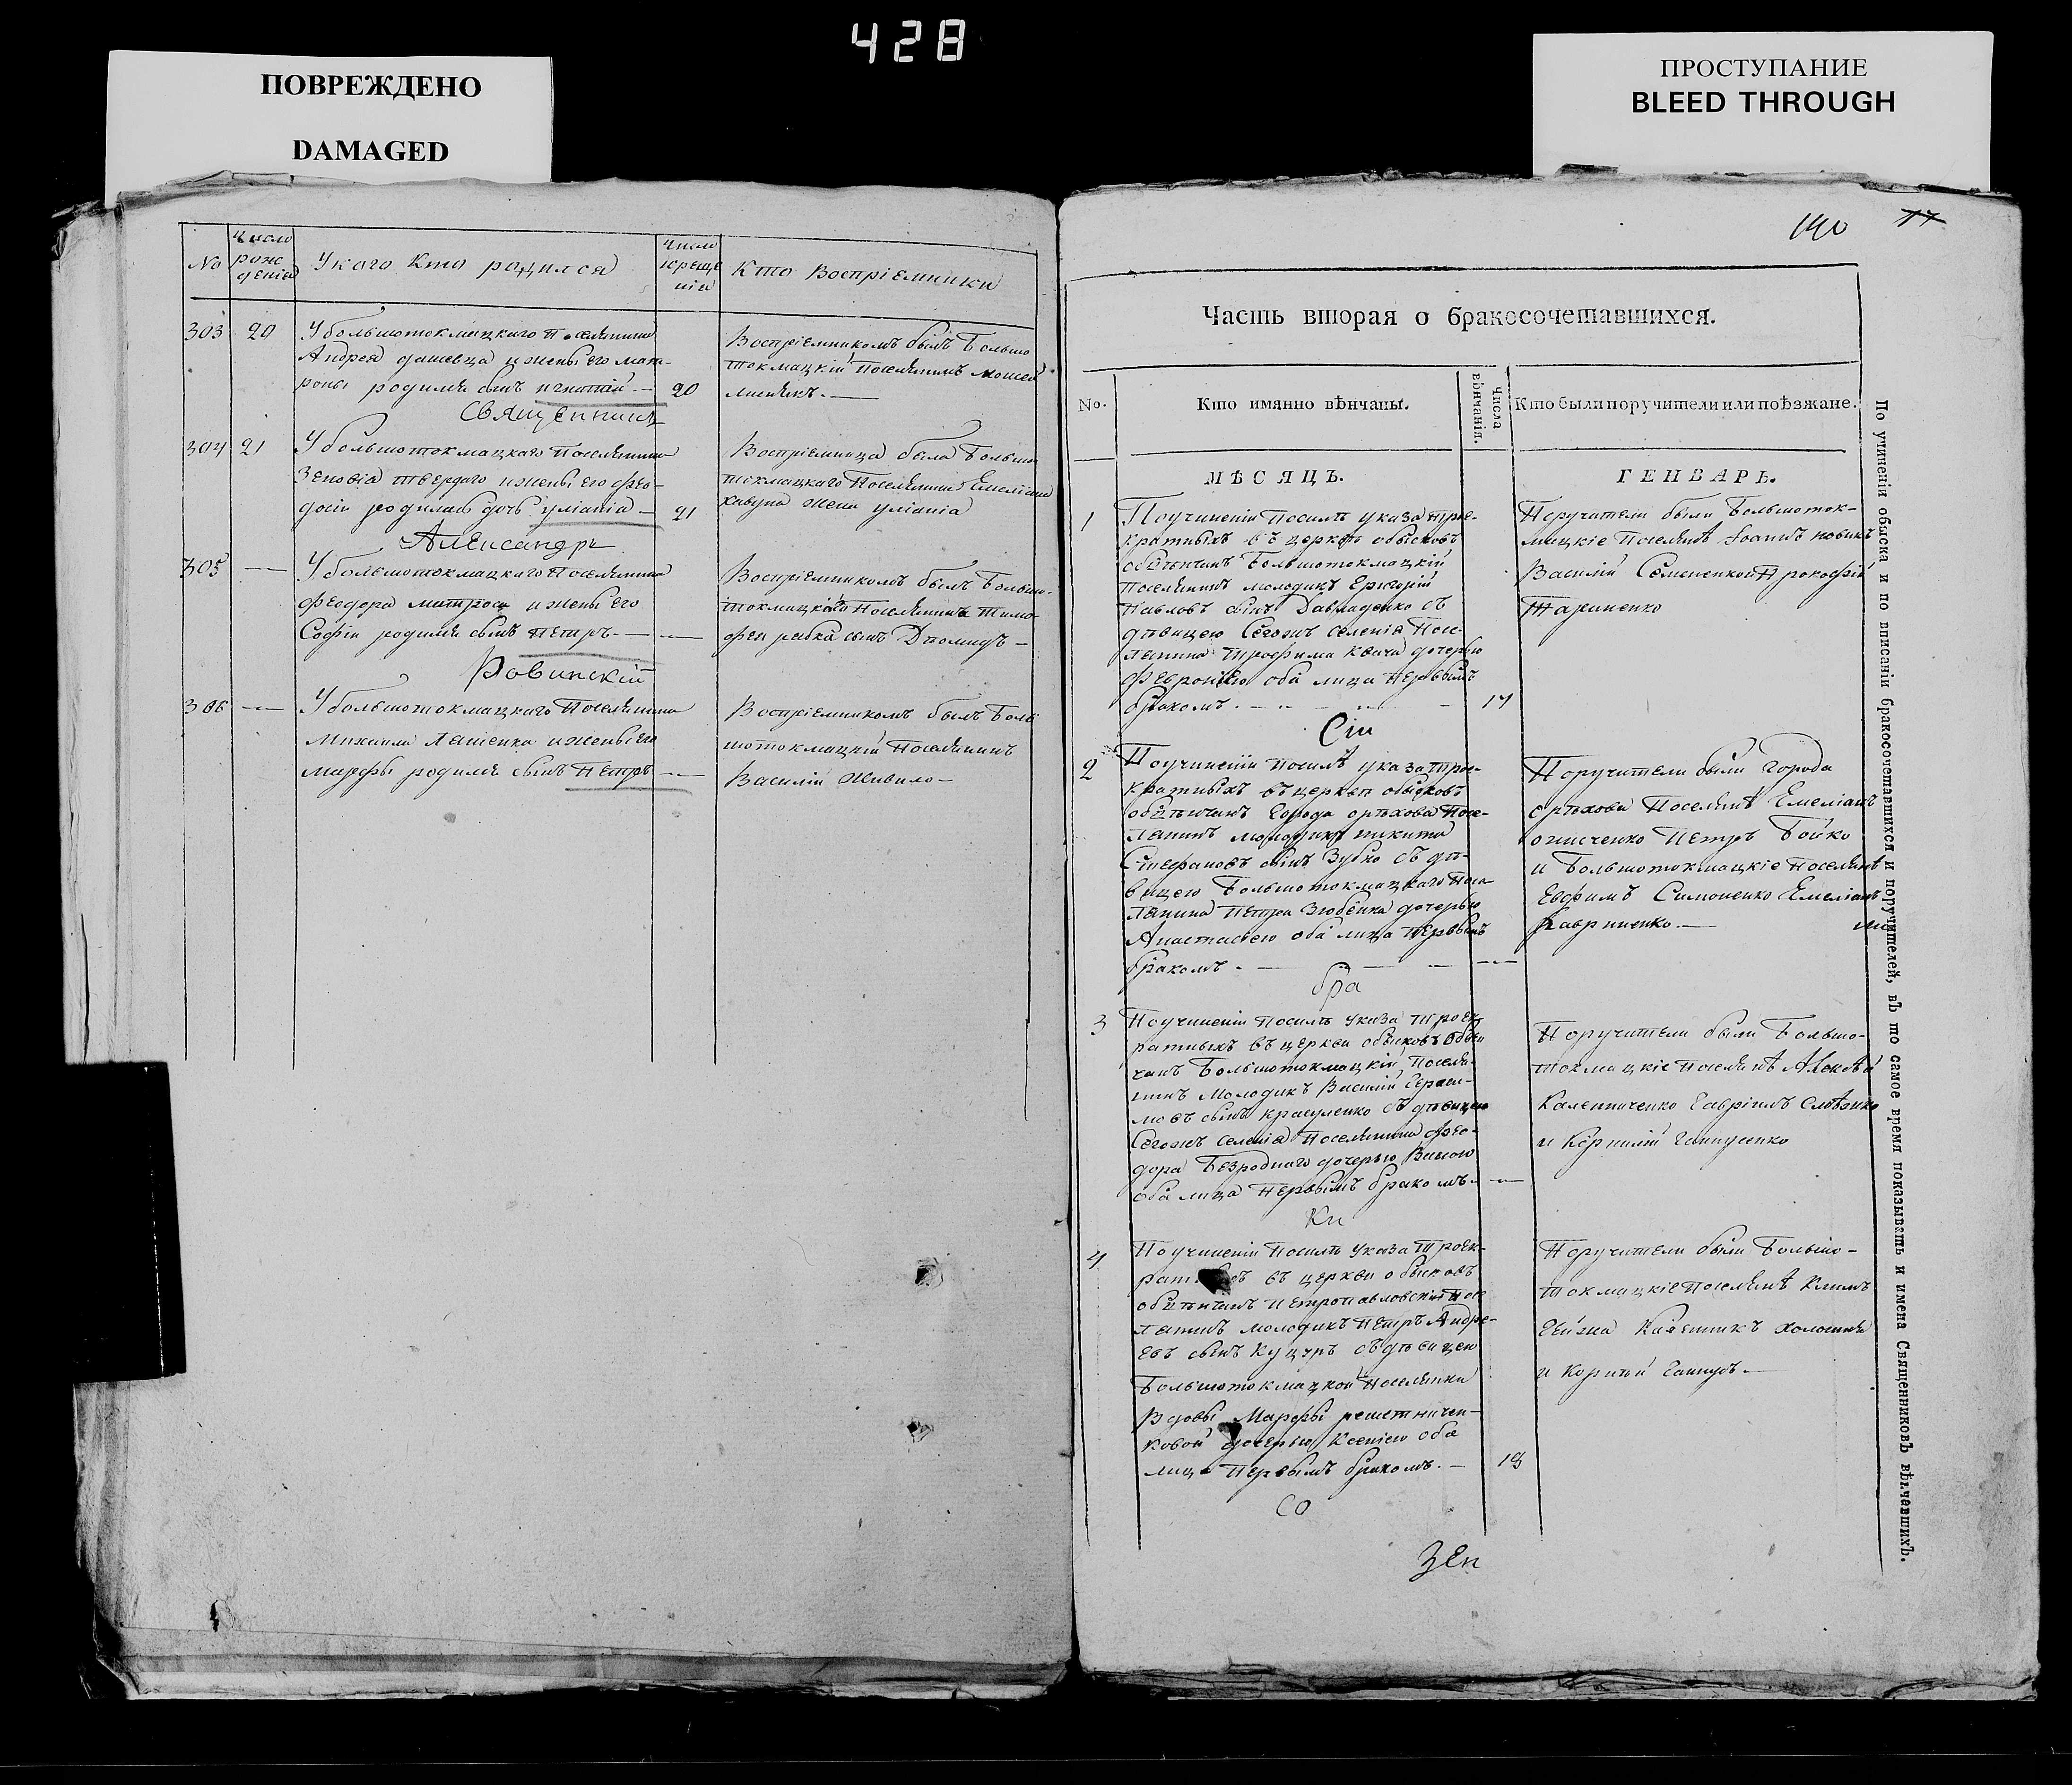 428
ПОВРЕЖДЕНО
DAMAGED
ПРОСТУПАНИЕ
BLEED THROUGH
No
Число рож денія
У кого Кто родился
Число креще нія
Кто Воспріемники
303 20
У большотокмацкаго Поселянина
Андрея и жены его мат-
роны родился сынъ игнатій. — 20
Воспріемникомъ былъ Большо
токмацкій Поселянинъ Моисей
Священникъ
304 21
У большотокмацкаго Поселянина
Зеновія твердаго и жены его фео-
досіи родилась дочь уліанія — 21
Воспріемница была Больше
токмацкаго Поселянина Емеліана
кавуна жена уліанія
Александръ
305 —
У большотокмацкаго Поселянина
феодора матроса и жены его
Софіи родился сынъ петръ. — —
Воспріемникомъ былъ Больше-
токмацкаго Поселянина тимо-
фея рабка сынъ Діомидъ —
Ровинскій
306 —
У большотокмацкаго Поселянина
Михаила ляшенка и жены его
марфы родился сынъ Петръ — —
Воспріемникомъ былъ Боль
шотокмацкій Поселянинъ
Василій Живило —
140 77
Часть вторая о бракосочетавшихся.
No.
Кто имянно вѣнчаны.
Числа вѣнчанія.
Кто были поручители или поѣзжане.
МѢСЯЦЪ.
ГЕНВАРЬ.
1
По учиненіи Посилѣ указа трое-
кратныхъ въ церкви обысковъ
обвѣнчанъ Большотокмацкій
Поселянинъ молодикъ Григорій
Павловъ сынъ Давиденко съ
дѣвицею Сегожъ селенія Посе-
лянина Трофима Квача дочерью
Февроніею оба лица первымъ
бракомъ. — 17
Поручители были Большоток-
мацкіе Поселянѣ Іоаннъ новикъ
Василій Семененко и Прокофій
Тараненко
Сіи
2
По учиненіи Посилѣ указа трое-
кратныхъ въ церкви обысковъ
обвѣнчанъ Города орѣхова Посе-
лянинъ молодикъ никита
Стефановъ сынъ Зубко съ дѣ-
вицею Большотокмацкаго Посе-
лянина Петра Зюбенка дочерью
Анастасіею оба лица первымъ
бракомъ. — — —
Поручители были Города
орѣхова Поселянѣ Емеліанъ
онисченко Петръ Бойко
и Большотокмацкіе Поселянѣ
Евфимъ Симоненко Емеліанъ
Гавриненко. —
бра
3
По учиненіи Посилѣ указа троек
ратныхъ въ церкви обысковъ Обвѣн
чанъ Большотокмацкій Поселя-
нинъ Молодикъ Василій Гераси-
мовъ сынъ Красуленко съ дѣвицею
Сегожъ селенія Поселянина фео-
дора Безроднаго дочерью
оба лица Первымъ бракомъ. — —
Поручители были Большо-
токмацкіе Поселянѣ Алексѣй
Калениченко Гавріилъ
и Корнилій
ки
4
По учиненіи Посилѣ указа Троек-
въ церкви обысковъ
обвѣнчанъ Петропавловскій Посе
лянинъ молодикъ Петръ Андре-
евъ сынъ Куцуръ съ дѣвицею
Большотокмацкой Поселянки
Вдовы Марфы решетничен-
ковой дочерью Ксеніею оба
лица Первымъ бракомъ. — 18
Поручители были Большо-
токмацкіе Поселянѣ Климъ
и Корнѣй
со
Зен
По учиненіи обыска и по вписаніи бракосочетавшихся и поручителей, въ то самое время показывать и имена Священниковъ вѣнчавшихъ.